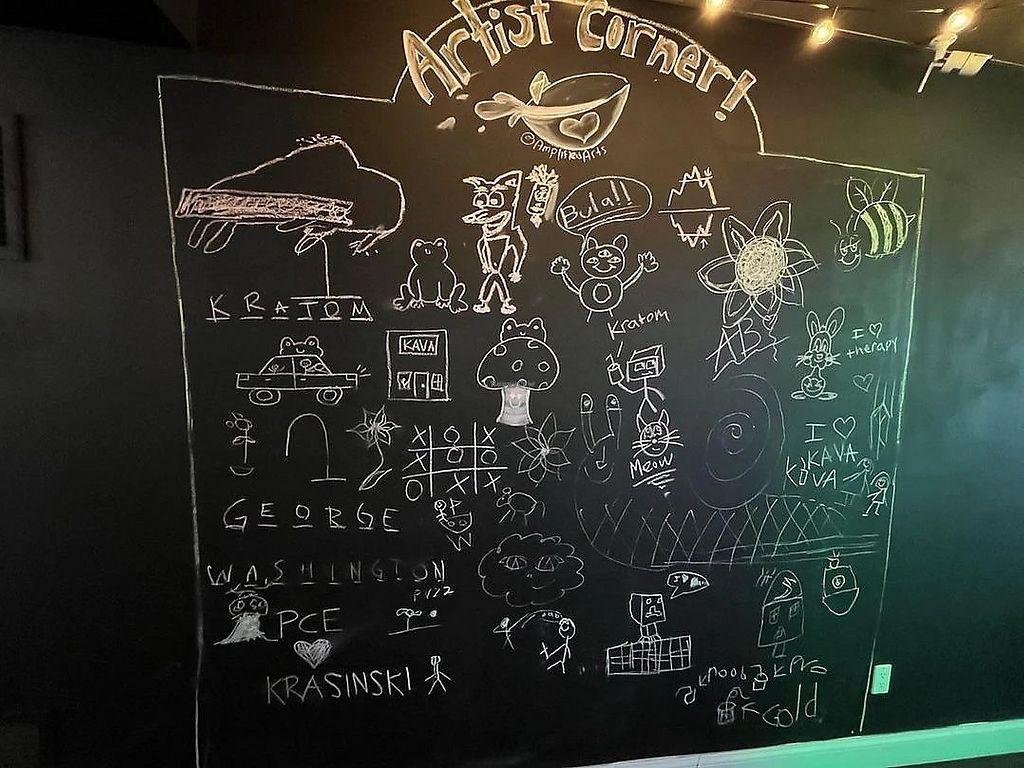 Artist Corner!
@AmplifiedArts
Bula!!
KRATOM
Kratom
ABL
KAVA
I ♡
therapy
X O X
X O O
O X X
Meow
I ♡
KAVA
KAVA
GEORGE
WASHINGTON
PCE
KRASINSKI
Gold